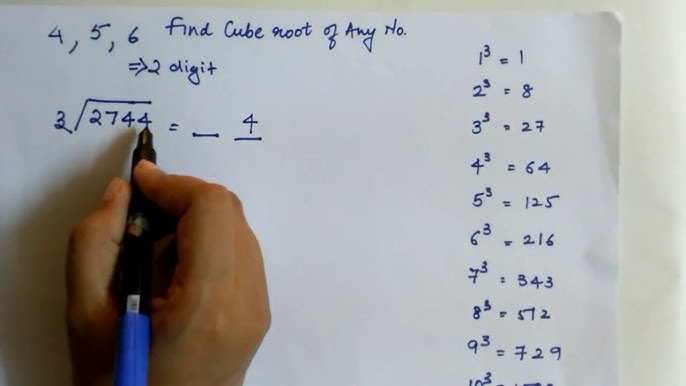 4, 5, 6 Find Cube root of Any No.
⇒ 2 digit
3√2744 = _ 4
1³ = 1
2³ = 8
3³ = 27
4³ = 64
5³ = 125
6³ = 216
7³ = 343
8³ = 512
9³ = 729